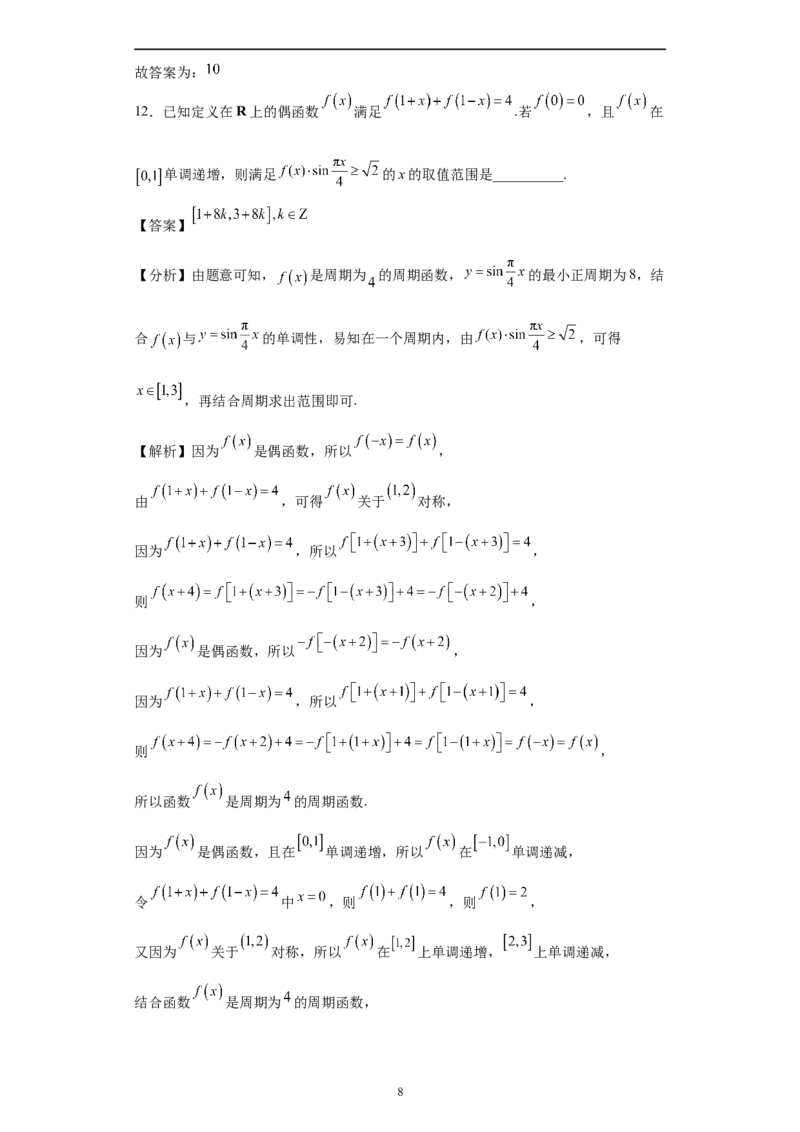 故答案为：10
12．已知定义在R上的偶函数 f(x) 满足 f(1+x)+f(1−x)=4 .若 f(0)=0 ，且 f(x) 在
[0,1]单调递增，则满足 f(x)·sin πx/4 ≥ √2 的x的取值范围是__________.
【答案】[1+8k,3+8k],k∈Z
【分析】由题意可知， f(x) 是周期为 4 的周期函数， y=sin π/4 x 的最小正周期为8，结
合 f(x) 与 y=sin π/4 x 的单调性，易知在一个周期内，由 f(x)·sin πx/4 ≥ √2 ，可得
x∈[1,3] ，再结合周期求出范围即可.
【解析】因为 f(x) 是偶函数，所以 f(−x)=f(x) ，
由 f(1+x)+f(1−x)=4 ，可得 f(x) 关于 (1,2) 对称，
因为 f(1+x)+f(1−x)=4 ，所以 f[1+(x+3)]+f[1−(x+3)]=4 ，
则 f(x+4)=f[1+(x+3)]=−f[1−(x+3)]+4=−f[−(x+2)]+4 ，
因为 f(x) 是偶函数，所以 −f[−(x+2)]=−f(x+2) ，
因为 f(1+x)+f(1−x)=4 ，所以 f[1+(x+1)]+f[1−(x+1)]=4 ，
则 f(x+4)=−f(x+2)+4=−f[1+(1+x)]+4=f[1−(1+x)]=f(−x)=f(x) ，
所以函数 f(x) 是周期为 4 的周期函数.
因为 f(x) 是偶函数，且在 [0,1] 单调递增，所以 f(x) 在 [−1,0] 单调递减，
令 f(1+x)+f(1−x)=4 中 x=0 ，则 f(1)+f(1)=4 ，则 f(1)=2 ，
又因为 f(x) 关于 (1,2) 对称，所以 f(x) 在 [1,2] 上单调递增， [2,3] 上单调递减，
结合函数 f(x) 是周期为 4 的周期函数，
8